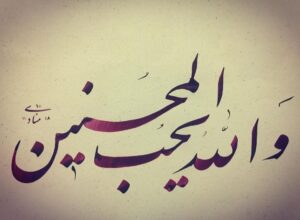 والله يحب المحسنين